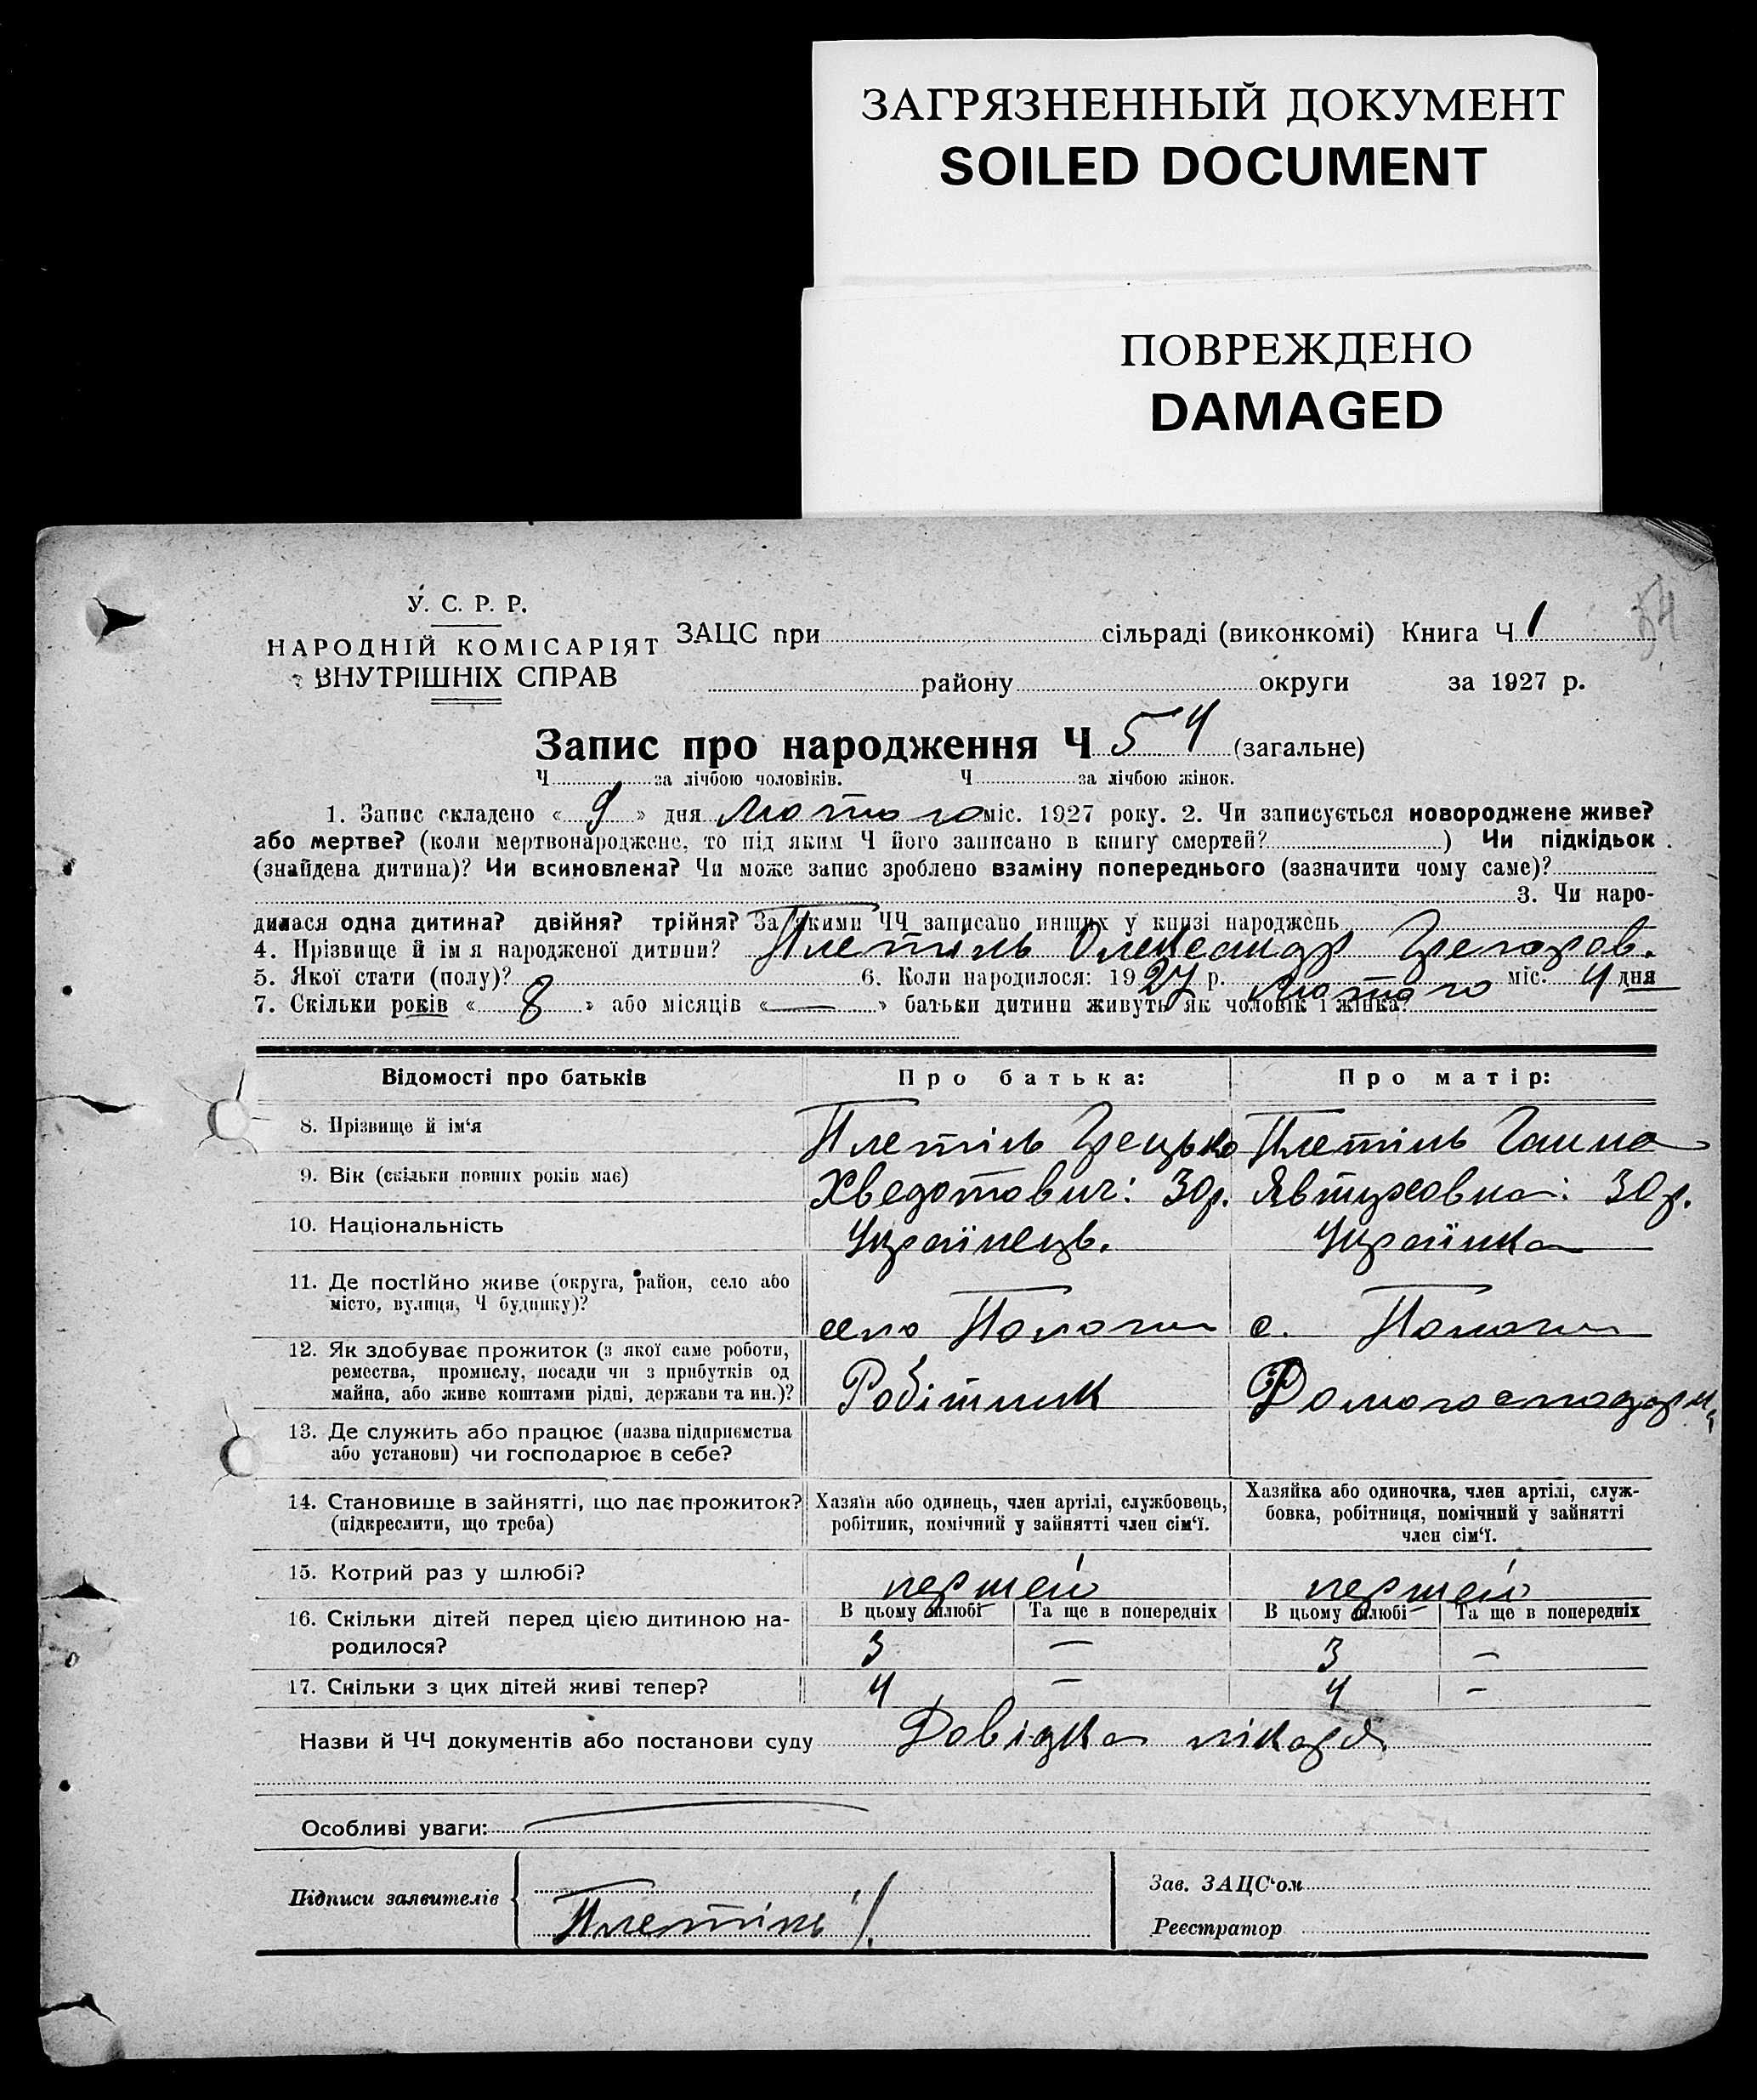 ЗАГРЯЗНЕННЫЙ ДОКУМЕНТ
SOILED DOCUMENT
ПОВРЕЖДЕНО
DAMAGED
У. С. Р. Р.
НАРОДНІЙ КОМІСАРІЯТ
ВНУТРІШНІХ СПРАВ
ЗАЦС при сільраді (виконкомі) Книга Ч 1
54
району округи за 1927 р.
Запис про народження Ч 54 (загальне)
Ч за лічбою чоловіків. Ч за лічбою жінок.
1. Запис складено « 9 » дня лютого міс. 1927 року. 2. Чи записується новороджене живе?
або мертве? (коли мертвонароджене, то під яким Ч його записано в книгу смертей? ) Чи підкідьок
(знайдена дитина)? Чи всиновлена? Чи може запис зроблено взаміну попереднього (зазначити чому саме)?
3. Чи наро-
дилася одна дитина? двійня? трійня? За якими ЧЧ записано инших у книзі народжень
4. Прізвище й ім я народженої дитини? Плетінь Олександр Грегоров.
5. Якої стати (полу)? 6. Коли народилося: 1927 р. Лютого міс. 4 дня
7. Скільки років « 8 » або місяців « — » батьки дитини живуть як чоловік і жінка?
Відомості про батьків Про батька: Про матір:
8. Прізвище й ім'я Плетінь Грецько Плетінь Ганна
9. Вік (скільки повних років має) Хведотович: 30 р. Явтуховна: 30 р.
10. Національність Українець. Українка
11. Де постійно живе (округа, район, село або
місто, вулиця, Ч будинку)?
село Пологи с. Пологи
12. Як здобуває прожиток (з якої саме роботи,
ремества, промислу, посади чи з прибутків од
майна, або живе коштами рідні, держави та ин.)?
Робітник Домогосподарк
13. Де служить або працює (назва підприємства
або установи) чи господарює в себе?
14. Становище в зайнятті, що дає прожиток?
(підкреслити, що треба)
Хазяїн або одинець, член артілі, службовець,
робітник, помічний у зайнятті член сім'ї.
Хазяйка або одиночка, член артілі, служ-
бовка, робітниця, помічний у зайнятті
член сім'ї.
15. Котрий раз у шлюбі? першей першей
16. Скільки дітей перед цією дитиною на-
родилося?
В цьому шлюбі Та ще в попередніх В цьому шлюбі Та ще в попередніх
3 — 3 —
17. Скільки з цих дітей живі тепер? 4 — 4 —
Назви й ЧЧ документів або постанови суду Довідка лікаря.
Особливі уваги:
Підписи заявителів
Плетінь
Зав. ЗАЦС'ом
Реєстратор